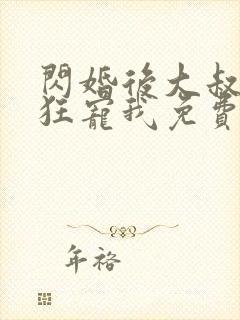 閃婚後大叔
狂寵我免費
年裕